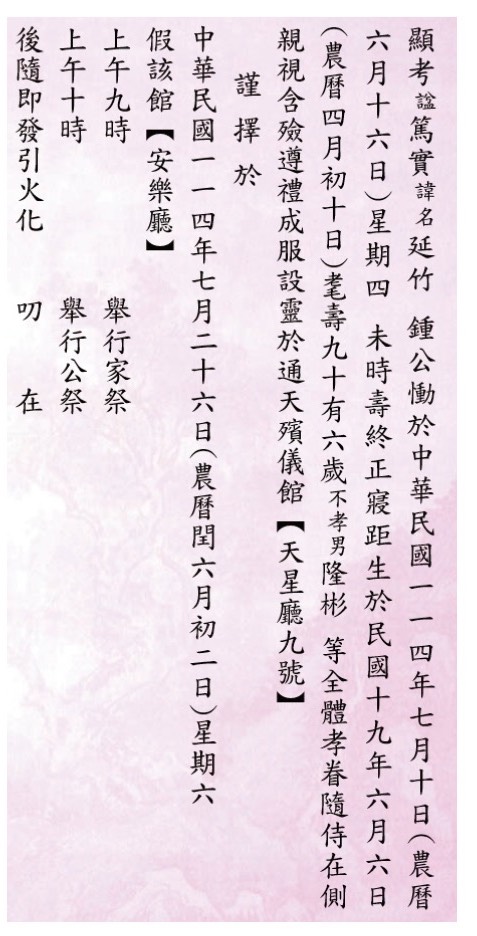 顯考諡篤實諱名延竹 鍾公慟於中華民國一一四年七月十日(農曆
六月十六日)星期四 未時壽終正寢距生於民國十九年六月六日
(農曆四月初十日)耄壽九十有六歲不孝男隆彬 等全體孝眷隨侍在側
親視含殮遵禮成服設靈於通天殯儀館【天星廳九號】
謹擇於
中華民國一一四年七月二十六日(農曆閏六月初二日)星期六
假該館【安樂廳】
上午九時 舉行家祭
上午十時 舉行公祭
後隨即發引火化 叨 在